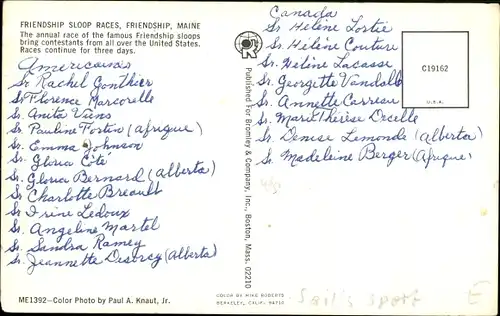 FRIENDSHIP SLOOP RACES, FRIENDSHIP, MAINE
The annual race of the famous Friendship sloops
bring contestants from all over the United States.
Races continue for three days.
Americaines
Sr Rachel Gonthier
Sr Florence Marcorelle
Sr. Anita Viens
Sr. Pauline Fortin (Afrique)
Sr. Emma Johnson
Sr. Gloria Côté
Sr. Gloria Bernard (Alberta)
Sr. Charlotte Breault
Sr Irine Ledoux
Sr. Angeline Martel
Sr. Sandra Ramey
Sr. Jeannette Desorcy (Alberta)
ME1392—Color Photo by Paul A. Knaut, Jr.
Published For Bromley & Company, Inc., Boston, Mass. 02210
Canada
Sr. Hélène Lortie
Sr. Hélène Couture
Sr. Hélène Lacasse
Sr. Georgette Vandall
Sr. Annette Carreau
Sr. Marie Thérèse Decelle
Sr. Denise Lemonde (Alberta)
Sr. Madeleine Berger (Afrique)
C19162
U.S.A.
COLOR BY MIKE ROBERTS
BERKELEY, CALIF. 94710
Sail's sport E